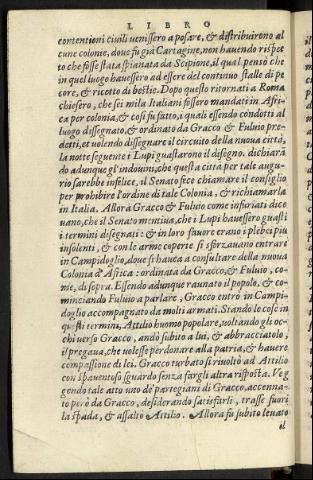 LIBRO
contentioni ciuili uenissero a posare, & distribuirono al
cune colonie, doue fu già Cartagine, non hauendo rispet
to che fosse stata spianata da Scipione, il qual pensò che
in quel luogo hauessero ad essere del continuo stalle di pe
core, & ricotto di bestie. Dopo questo ritornati a Roma
chiesero, che sei mila Italiani fossero mandati in Afri-
ca per colonia, & così fu fatto, a quali essendo condotti al
luogo dissegnato, & ordinato da Gracco & Fuluio pre-
detti, et volendo dissegnare il circuito della nuoua città,
la notte seguente i Lupi guastarono il disegno. dichiarā
do adunque gl'indouini, che questa città per tale augu-
rio sarebbe infelice, il Senato fece chiamare il consiglio
per prohibire l'ordine di tale Colonia, & richiamarla
in Italia. Allora Gracco & Fuluio come infuriati dice
uano, che il Senato mentiua, che i Lupi hauessero guasti
i termini disegnati: & in loro fauore erano i plebei piu
insolenti, & con le arme coperte si sforzauano entrare
in Campidoglio, doue si haueа a consultare della nuoua
Colonia d'Africa: ordinata da Gracco, & Fuluio, co-
me, di sopra. Essendo adunque raunato il popolo, & co-
minciando Fuluio a parlare, Gracco entrò in Campi-
doglio accompagnato da molti armati. Stando le cose in
questi termini, Attilio huomo popolare, voltando gli oc-
chi verso Gracco, andò subito a lui, & abbracciatolo,
il pregaua, che uolesse perdonare alla patria, & hauere
compassione di lei. Gracco turbato si riuoltò ad Attilio
con spauentoso sguardo senza fargli altra risposta. Veg
gendo tale atto uno de partegiani di Gracco, accenna-
to però da Gracco, desiderando satisfarli, trasse fuori
la spada, & assaltò Attilio. Allora fu subito leuato
il